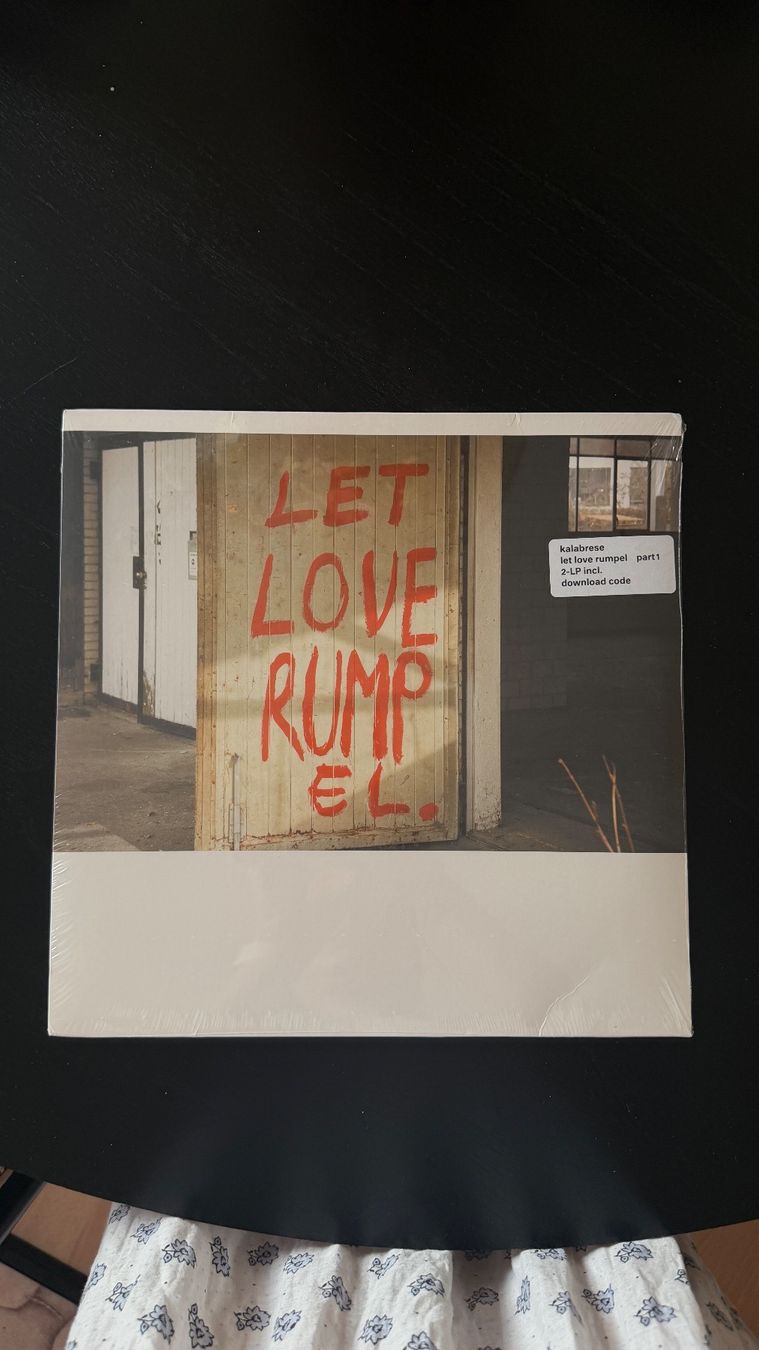 LET
LOVE
RUMP
EL.
kalabrese
let love rumpel part1
2-LP incl.
download code